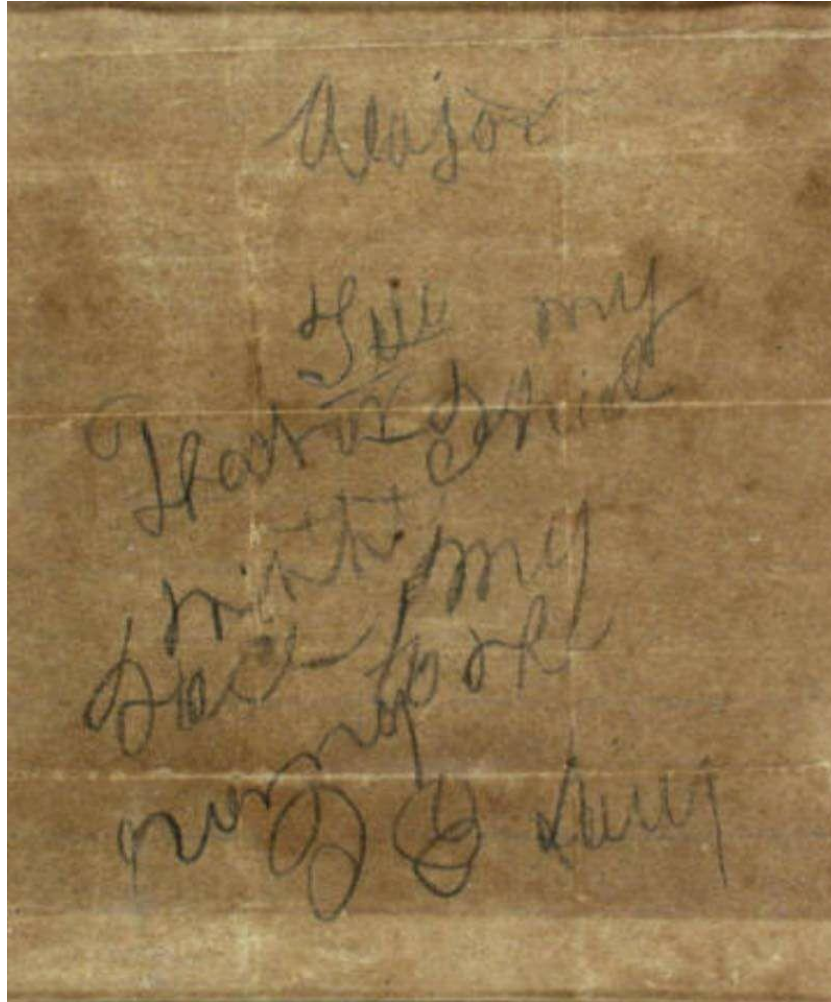 Major
Tell my
Father I died
with my
Face to the
enemy I E Avery